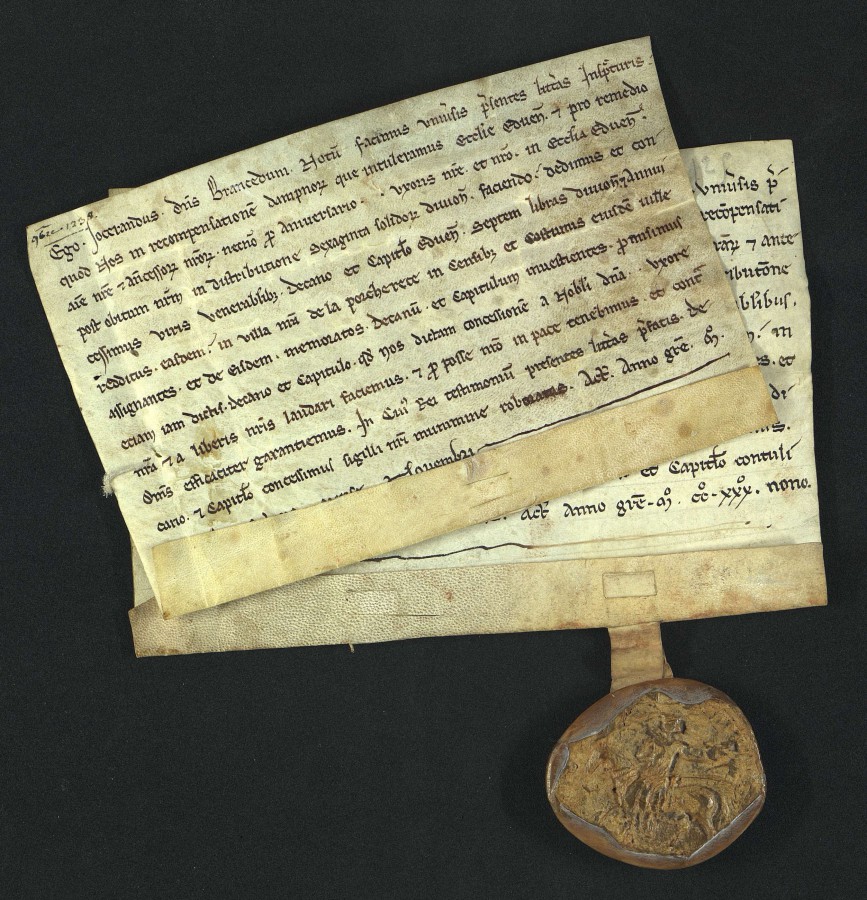 9bre. 1239.
Ego. Jocerandus. dn̄s Brancedum. Notū facimus vniu̾sis p̄sentes litt̾as Inspecturis.
quod Nos in recompensationē dampnoꝝ que intuleramus Ecclie Eduen̄. ⁊ pro remedio
aīe nr̄e ⁊ Ancessoꝝ nr̄oꝝ. necnō ꝓ Anniversario. vxoris nr̄e. et nrō. in Ecclia Eduen̄.
post obitum nrm̄ in distributione sexaginta solidoꝝ divion̄. faciendo. dedimus et con
cessimus viris venerabilibꝫ. decano et Capitl̾o Eduen̄. septem libras divion̄ Annui
redditus. easdem. in villa nrā de la porcherete in Censibꝫ et Costumis eiusdē ville
assignantes. et de Eisdem. memoratos. decanū. et Capitulum inuestientes. ꝓmisimus
etiam iam dictis. decano et Capitulo. qd̄ nos dictam concessionē a Nobli dn̄a. vxore
nrā ⁊ a liberis nr̄is laudari faciemus. ⁊ ꝓ posse nrō in pace tenebimus. et cont̾
Om̄s efficaciter garantiemus. In Cui⁹ Rei testimoniū presentes litt̾as p̄fatis. de
cano. ⁊ Capitl̾o concessimus sigilli nrī munimine roboratas. Act̄. Anno gr̄e. M̊.
Nouembri
vniu̾sis p̄
recōpensati
⁊ Ante
ibutōne
bilibus.
in
et
di
et Capitl̾o contuli
act̄ Anno gr̄e. M̊. cc̊. xxx̊. nono.